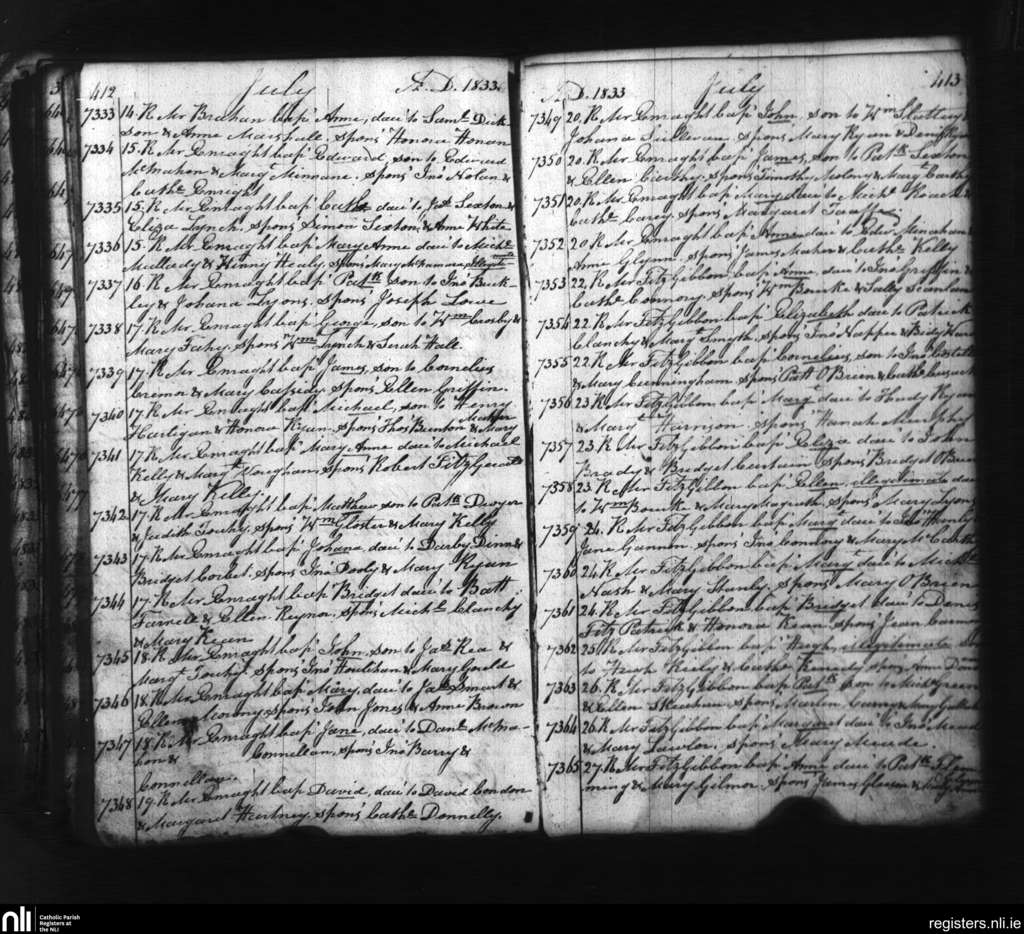 412 July A. D. 1833
7333 14. R Mr Brahan bap Anne, dau to Saml Dick-
son & Anne Marshall. spons Honora Honan
7334 15. R Mr Enraght bap Edward, son to Edward
McMahon & Mary Minnane. spons Jno Nolan &
Cathe Enright
7335 15. R Mr Enraght bap Cathe dau to Jas Sexton &
Eliza Lynch, spons Simon Sexton & Anne White
7336 15. R. Mr Enraght bap Mary Anne dau to Miche
Mullady & Winny Healy, spons Mary McNamara
7337 16. R Mr Enraght bap Patt son to Jno Buck-
ley & Johana Lyons. Spons Joseph Lowe
7338 17. R Mr. Enraght bap George, son to Wm Crosby &
Mary Fahy. spons Wm Lynch & Sarah Hall
7339 17. R. Mr. Enraght bap James, son to Cornelius
& Mary Cassidy spons Ellen Griffin.
7340 17. R Mr Enraght bap Michael, son to Henry
Hartigan & Honora Ryan. spons Thos &
7341 17. R Mr Enraght bap Mary Anne dau to Michael
Kelly & Margt Vaughan, spons Robert FitzGerald
& Mary Kelly
7342 17. R Mr Enraght bap Matthew son to Patk Dwyer
& Judith Touhy. spons Wm Gloster & Mary Kelly
7343 17. R Mr Enraght bap Johana dau to Darby Dinn &
Bridget Corbet. spons Jno Dooly & Mary Ryan
7344 17. R Mr Enraght bap Bridget dau to Batt
Farrell & Ellen Reynon. spons Michl Clanchy
& Mary Kean
7345 18. R Mr Enraght bap John, son to Jas Rea &
Margt Touhy. spons Jno Houlihan & Mary Gould
7346 18. R Mr Enraght bap Mary, dau to Jas Smart &
Ellen spons John Jones & Anne Brown
7347 18. R. Mr. Enraght bap Jane, dau to Danl McMa-
hon & Connellan. spons Jno Barry &
Connellan.
7348 19. R Mr Enraght bap David, dau to David Condon
& Margaret Hartney. spons Cathe Donnelly.
A. D. 1833 July 413
7349 20. R Mr Enraght bap John son to Wm Slattery
Johana Sullivan. spons Mary Ryan &
7350 20. R. Mr Enraght bap James, son to Patk Sexton
& Ellen spons Timothy Molony & Mary Carthy
7351 20. R Mr Enraght bap Mary dau to Michl
Cathe Carey. spons Margaret
7352 20 R Mr Enraght bap Anne dau to Peter Minahan &
Anne Glynn. spons James Mahon & Cathe Kelly
7353 22. R Mr FitzGibbon bap Anne. dau to Jno Griffin &
Cathe spons Wm Bourke & Sally Scanlan
7354 22. R Mr FitzGibbon bap Elizabeth dau to Patrick
Clanchy & Margt Smyth. spons Jno Napper & Bidy
7355 22. R Mr FitzGibbon bap Cornelius, son to Jno
& Mary Cunningham spons Patt OBrien & Cathe
7356 23 R Mr FitzGibbon bap Margt dau to Thady Ryan
& Mary Harrison. spons Hanah Murphy
7357 23. R Mr FitzGibbon bap Eliza dau to John
Brady & Bridget Curtain spons Bridget OBrien
7358 23. R Mr FitzGibbon bap Ellen, illegitimate dau
to Wm Bourke & Mary Magrath spons Mary Lyons
7359 24. R Mr FitzGibbon bap Margt dau to
Jane Gannon. spons Jno Condony & Mary McCarthy
7360 24. R Mr FitzGibbon bap Margt dau to Michl
Nash & Mary Shanly. spons Mary OBrien
7361 24. R Mr FitzGibbon bap Bridget dau to Denis
Fitz Patrick & Honora Kean spons Jean
7362 25. R Mr FitzGibbon bap Hugh, illegitimate son
to Hugh Kiely & Cathe Kennedy spons Anne
7363 26. R Mr FitzGibbon bap Patk son to Michl Green
& Ellen Sheehan. spons Martin
7364 26. R Mr FitzGibbon bap Margaret dau to Jno
& Mary Lawlor. spons Mary Meade.
7365 27. R Mr FitzGibbon bap Anne dau to Patk
& Mary Gilmor. spons James Gleeson &
nli Catholic Parish
Registers at
the NLI
registers.nli.ie